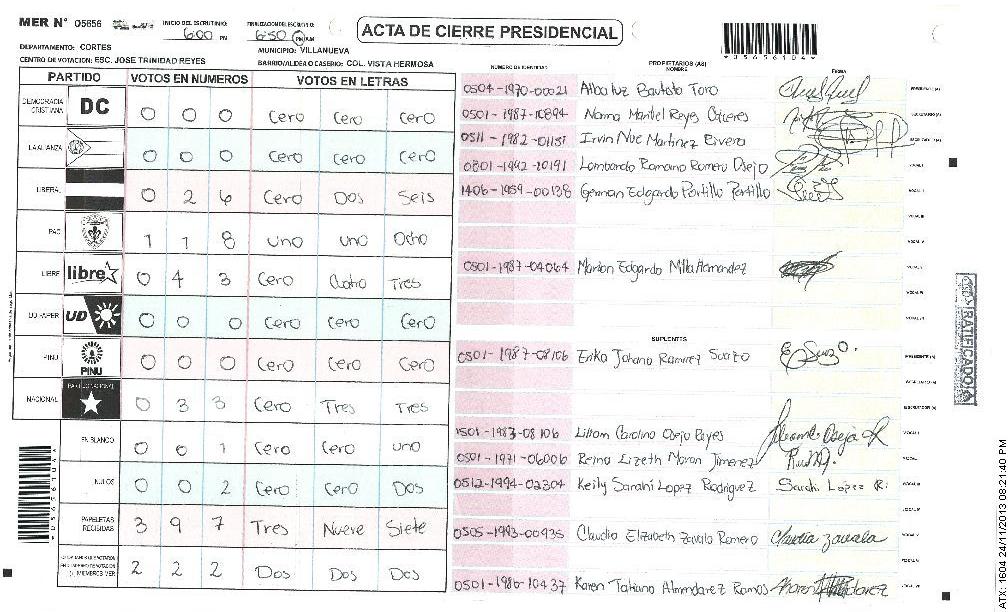 MER N° 05656
INICIO DEL ESCRUTINIO: 6:00 PM
FINALIZACION DEL ESCRUTINIO: 6:50 PM AM
ACTA DE CIERRE PRESIDENCIAL
*05656104*
DEPARTAMENTO: CORTES
MUNICIPIO: VILLANUEVA
CENTRO DE VOTACION: ESC. JOSE TRINIDAD REYES
BARRIO/ALDEA O CASERIO: COL. VISTA HERMOSA
PARTIDO VOTOS EN NUMEROS VOTOS EN LETRAS
DEMOCRACIA CRISTIANA DC 0 0 0 Cero Cero Cero
LA ALIANZA 0 0 0 Cero Cero Cero
LIBERAL 0 2 6 Cero Dos Seis
PAC 1 1 8 uno uno Ocho
LIBRE libre 0 4 3 Cero Cuatro Tres
UD FAPER UD 0 0 0 Cero Cero Cero
PINU PINU 0 0 0 Cero Cero Cero
NACIONAL PARTIDO NACIONAL 0 3 3 Cero Tres Tres
EN BLANCO 0 0 1 Cero Cero uno
NULOS 0 0 2 Cero Cero Dos
PAPELETAS RECIBIDAS 3 9 7 Tres Nueve Siete
2 2 2 Dos Dos Dos
NUMERO DE IDENTIDAD
PROPIETARIOS (AS)
NOMBRE
FIRMA
0504-1970-00021 Alba luz Bautista Toro PRESIDENTE (A)
0501-1987-10894 Norma Maribel Reyes Caceres SECRETARIO (A)
0511-1982-01151 Irvin Noe Martinez Rivera ESCRUTADOR (A)
0801-1992-10191 Lombardo Romano Romero Osejo VOCAL I
1406-1959-00138 German Edgardo Portillo Portillo VOCAL II
VOCAL III
VOCAL IV
0501-1987-04064 Marlon Edgardo Milla Hernandez VOCAL V
VOCAL VI
VOCAL VII
SUPLENTES
0501-1987-08106 Erika Johana Ramirez Suazo E. Suazo. PRESIDENTE (A)
SECRETARIO (A)
ESCRUTADOR (A)
1501-1983-08106 Liliam Carolina Osejo Reyes VOCAL I
0501-1971-06006 Reina Lizeth Moran Jimenez VOCAL II
0512-1994-02304 Keily Sarahi Lopez Rodriguez Sarahi Lopez R. VOCAL III
VOCAL IV
0505-1993-00935 Claudia Elizabeth Zavala Romero Claudia Zavala VOCAL V
VOCAL VI
0501-1986-10437 Karen Tatiana Almendarez Ramos VOCAL VII
RATIFICADO
ATX: 1604 24/11/2013 08:21:40 PM